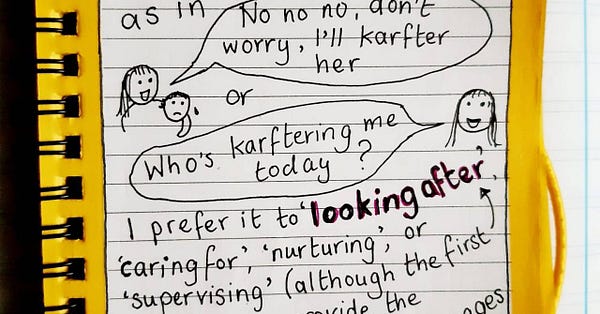 as in
No no no, don't
worry, I'll karfter
her
or
Who's karftering me
today?
I prefer it to 'looking after',
'caring for', 'nurturing', or
'supervising' (although the first
the